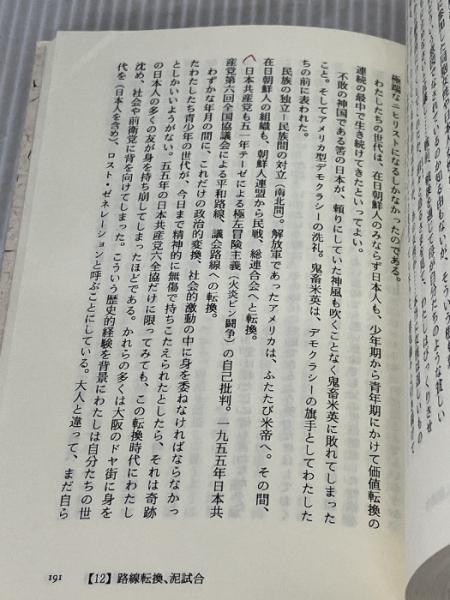 極端なニヒリストになるしかなかったのである。
わたしたちの世代は、在日朝鮮人のみならず日本人も、少年期から青年期にかけて価値転換の
連続の最中で生き続けてきたといってよい。
不敗の神国である筈の日本が、頼りにしていた神風も吹くことなく鬼畜米英に敗れてしまった
こと。そしてアメリカ型デモクラシーの洗礼。鬼畜米英は、デモクラシーの旗手としてわたした
ちの前に表われた。
民族の独立—民族間の対立(南北間)。解放軍であったアメリカは、ふたたび米帝へ。その間、
在日朝鮮人の組織も、朝鮮人連盟から民戦、総連合会へと転換。
日本共産党も五一年テーゼによる極左冒険主義(火炎ビン闘争)の自己批判。一九五五年日本共
産党第六回全国協議会による平和路線、議会路線への転換。
わずかな年月の間に、これだけの政治的変換、社会的激動の中に身を委ねなければならなかっ
たわたしたち青少年の世代が、今日まで精神的に無傷で持ちこたえられたとしたら、それは奇跡
としかいいようがない。五五年の日本共産党六全協だけに限ってみても、この転換時代にわたし
の日本人の多くの友が身を持ち崩してしまったほどである。かれらの多くは大阪のドヤ街に身を
沈め、社会や前衛党に背を向けてしまった。こういう歴史的経験を背景にわたしは自分たちの世
代を(日本人を含め)、ロスト・ゼネレーションと呼ぶことにしている。大人と違って、まだ自ら
191 【12】路線転換、泥試合